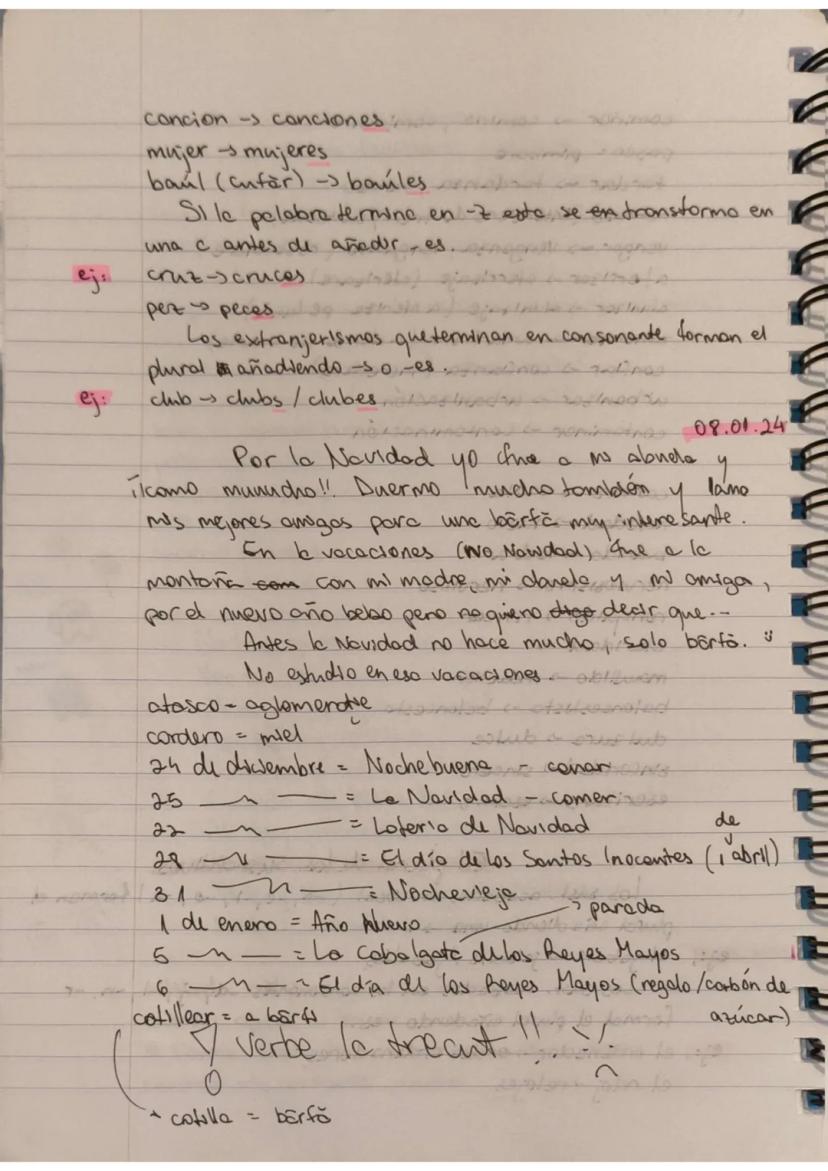 cancion -> canciones
mujer -> mujeres
baúl (cufăr) -> baúles
Si la palabra termina en -z esta, se en transforma en
una c antes de añadir -es.
ej: cruz -> cruces
pez -> peces
Los extranjerismos que terminan en consonante forman el
plural añadiendo -s o -es.
ej: club -> clubs / clubes
08.01.24
Por la Navidad yo fue a mi abuela y
¡¡como muuucho!! Duermo mucho también y
mis mejores amigos para una bârfă muy interesante.
En la vacaciones (No Navidad) fue a la
montaña com con mi madre, mi y mi amiga,
por el nuevo año bebo pero no quiero digo decir que...
Antes la Navidad no hace mucho, solo bârfă.
No estudio en esa vacaciones.
atasco - aglomerație
cordero = miel
24 de diciembre = Nochebuena - cenar
25 = La Navidad - comer
22 = Loteria de Navidad
28 = El día de los Santos Inocentes (1 de abril)
31 = Nochevieja
1 de enero = Año Nuevo
5 = La Cabalgata de los Reyes Mayos -> parada
6 = El dia de los Reyes Mayos (regalo/carbón de
azúcar)
cotillear = a bârfi
verbe la trecut!!
cotilla = bârfă